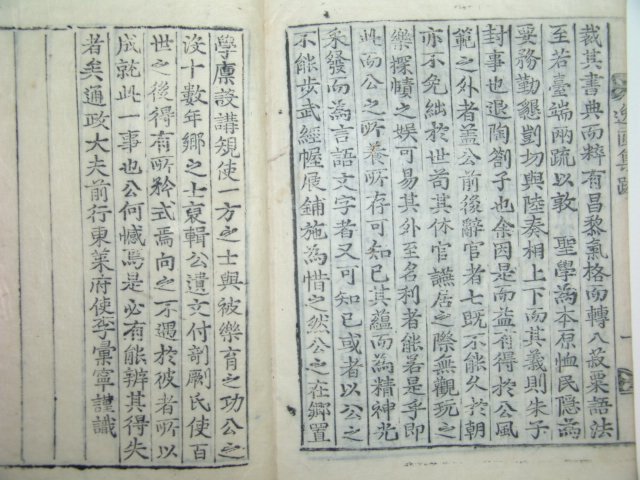 裁其書典而粹有昌黎氣格而轉入菽粟語法
至若臺端兩疏以敦 聖學為本原恤民隱為
要務勤懇剴切與陸奏相上下而其義則朱子
封事也退陶劄子也余因是而益有得於公風
範之外者益公前後辭官者七既不能久於朝
亦不免絀於世苟其休官讌居之際無觀玩之
樂探賾之娛可易其外至名利者能若是乎即
此而公之所養所存可知已其蘊而為精神光
采發而為言語文字者又可知已或者以公之
不能步武經幄展鋪施為惜之然公之在鄉置
學廩設講規使一方之士與被樂育之功公之
沒十數年鄉之士裒輯公遺文付剞劂氏使百
世之後得有所矜式焉向之不遇於彼者所以
成就此一事也公何憾焉是必有能辨其得失
者矣通政大夫前行東萊府使李彙寧謹識